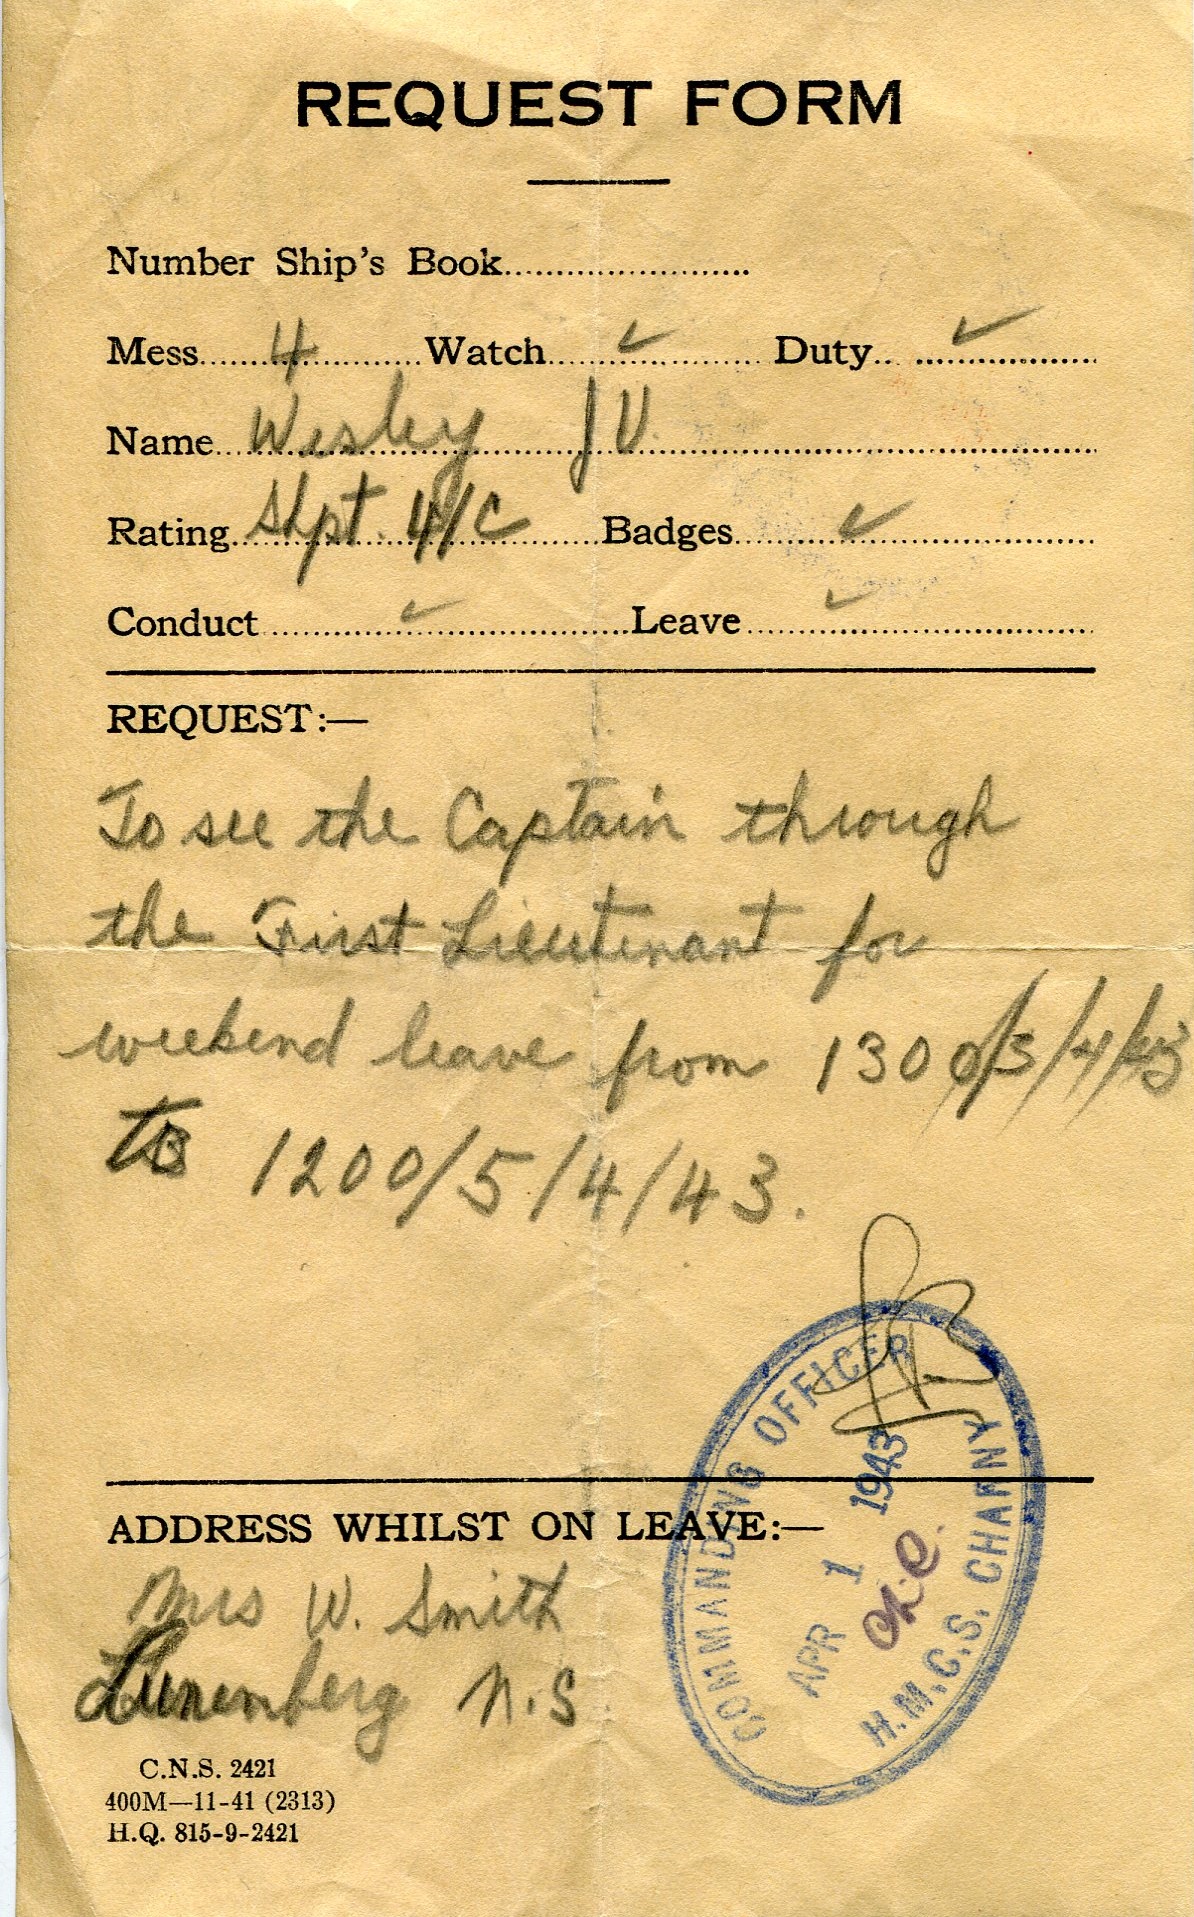 REQUEST FORM
Number Ship's Book
Mess 4 Watch ✓ Duty ✓
Name Wesley J V.
Rating Shpt. 4/C Badges ✓
Conduct ✓ Leave ✓
REQUEST:—
To see the Captain through
the First Lieutenant for
weekend leave from 1300/3/4/43
to 1200/5/4/43.
COMMANDING OFFICER
APR 1 1943
H.M.C.S. CHARNY
ADDRESS WHILST ON LEAVE:—
Mrs W. Smith
Lunenberg N.S
C.N.S. 2421
400M—11-41 (2313)
H.Q. 815-9-2421